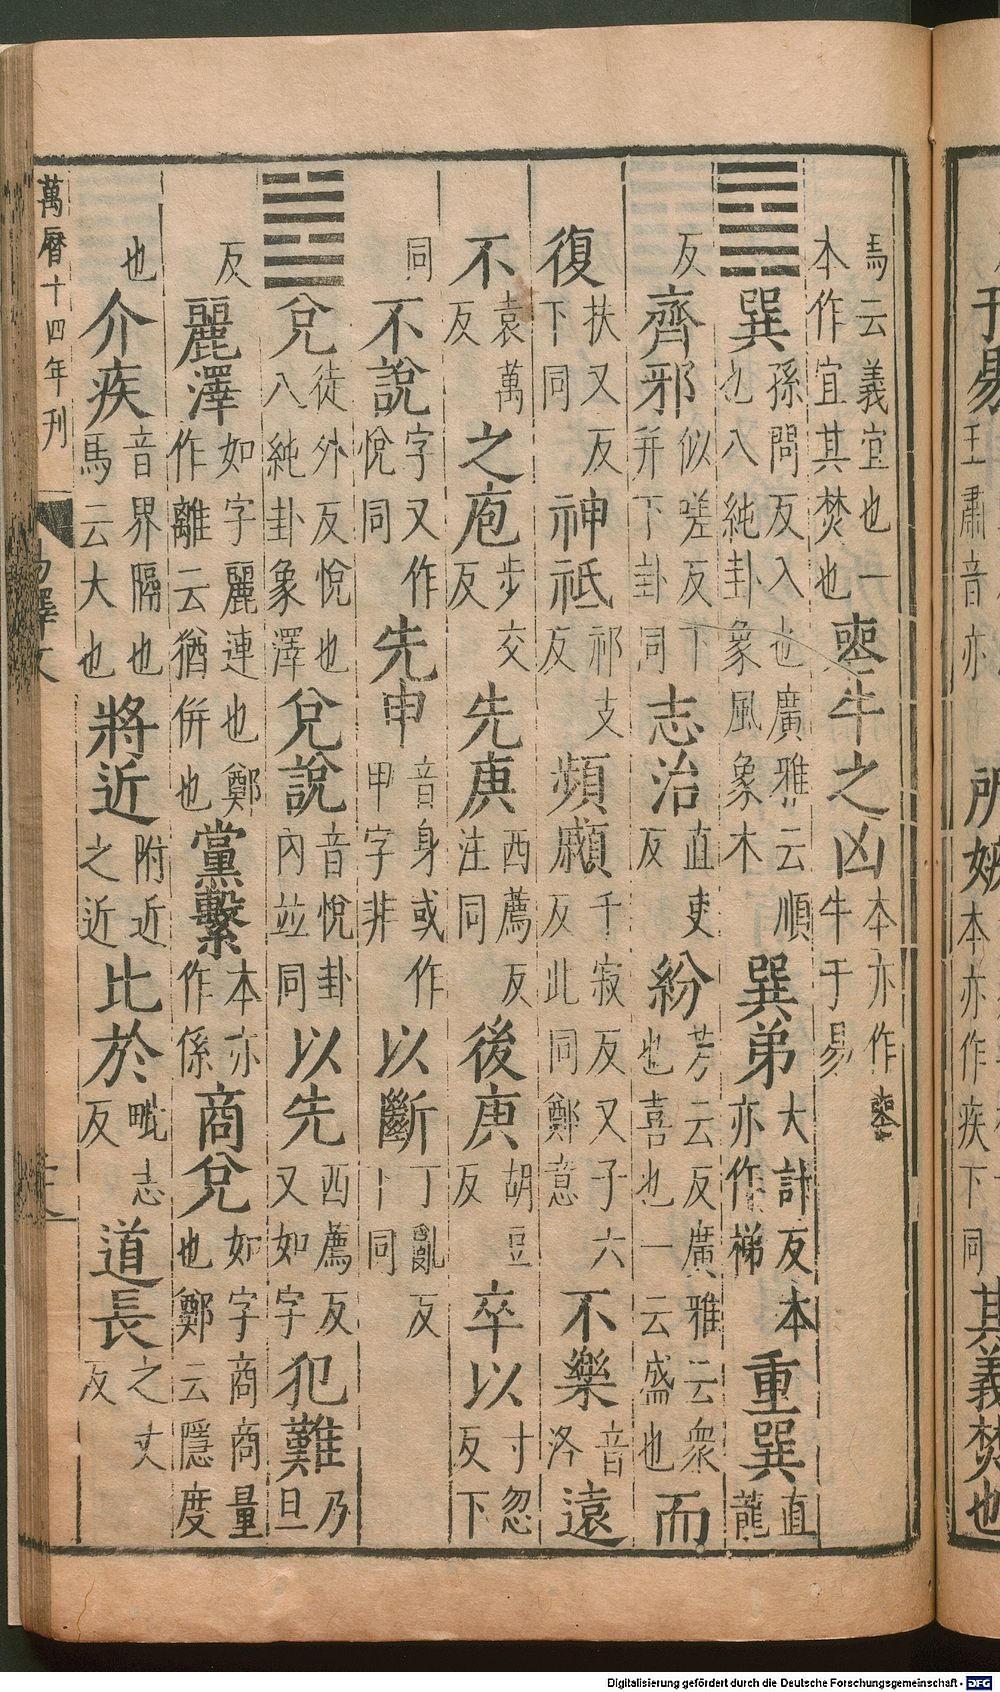 于易王肅音亦所嫉本亦作疾下同其義焚也
馬云義宜也一本作宜其焚也喪牛之凶本亦作喪牛于易
䷸巽孫問反入也廣雅云順也八純卦象風象木巽弟大計反本亦作梯重巽直龍
反齊邪似嗟反下并下卦同志治直吏反紛芳云反廣雅云衆也喜也一云盛也而
復扶又反下同神祇祁支反頻顣千寂反又子六反此同鄭意不樂音洛遠
不袁萬反之庖步交反先庚西薦反注同後庚胡豆反卒以寸忽反下
同不說字又作悅同先申音身或作甲字非以斷丁亂反卜同
䷹兌徒外反悅也八純卦象澤兌說音悅卦內並同以先西薦反又如字犯難乃旦
反麗澤如字麗連也鄭作離云猶併也黨繫本亦作係商兌如字商商量也鄭云隱度
也介疾音界隔也馬云大也將近附近之近比於毗志反道長之丈反
萬曆十四年刊 易釋文
Digitalisierung gefördert durch die Deutsche Forschungsgemeinschaft - DFG